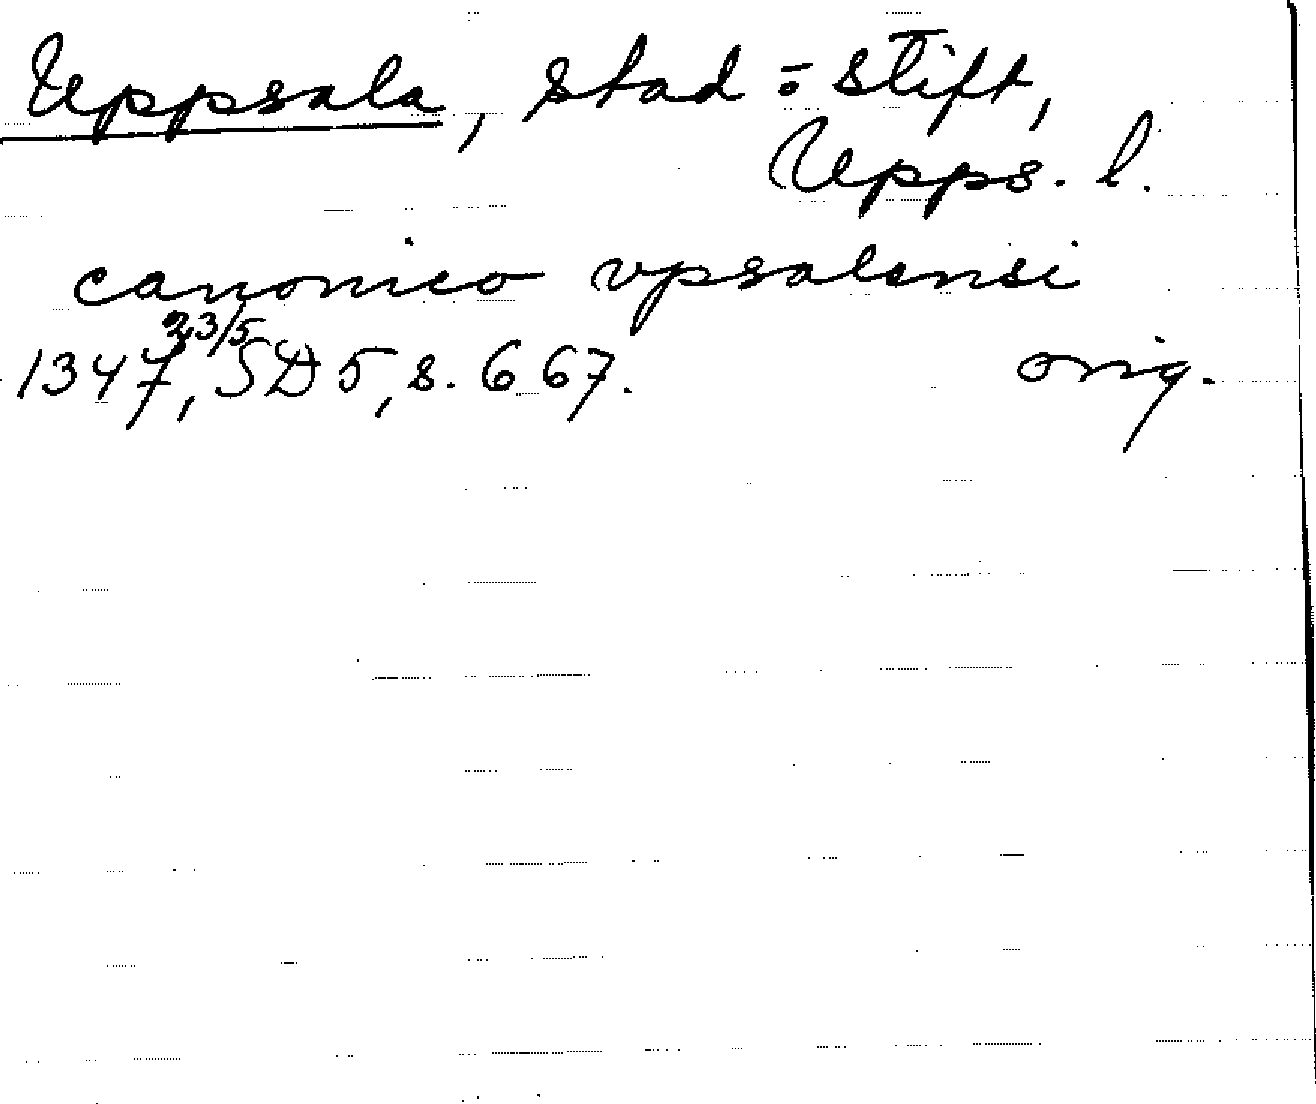 Uppsala, stad o. stift,
Upps. l.
canonico vpsalensi
1347 23/5, SD 5, s. 667. orig.